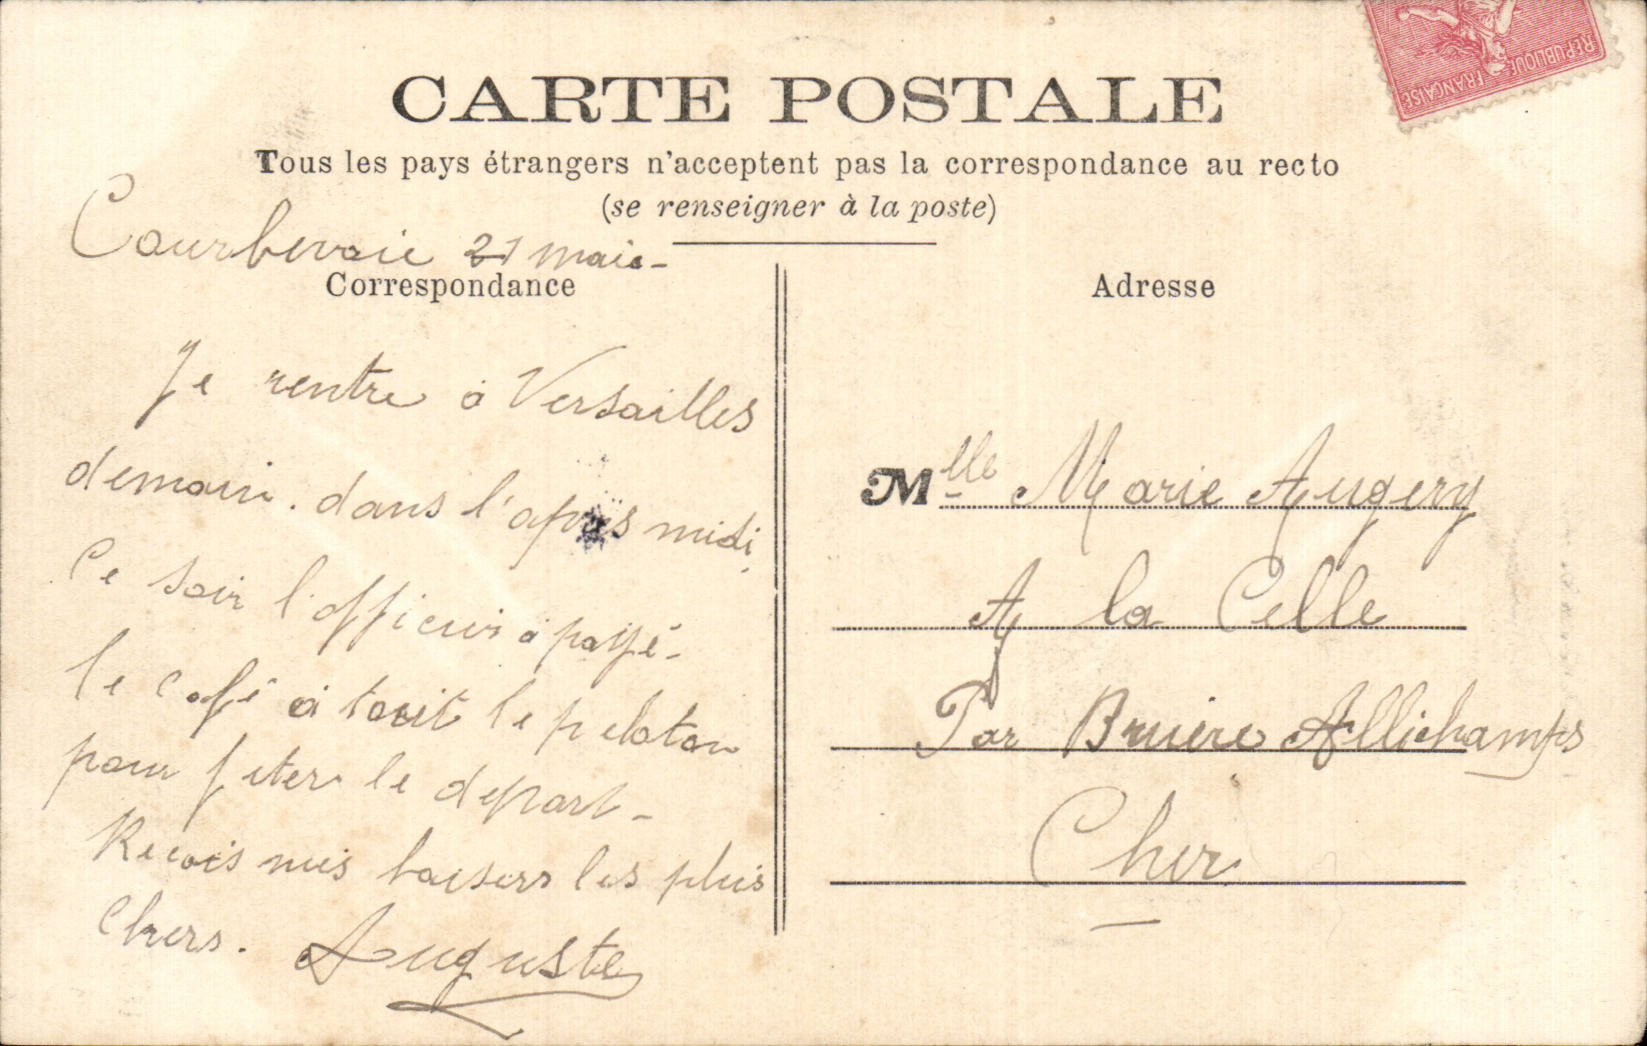 CARTE POSTALE
Tous les pays étrangers n'acceptent pas la correspondance au recto
(se renseigner à la poste)
Courbevoie 21 mai-
Correspondance
Je rentre à Versailles
demain. dans l'après midi
Ce soir l'officier à payé-
le café à tout le peloton
pour feter le depart-
Recois mes baisers les plus
Chers. Auguste
Adresse
Mlle Marie Augery
A la Celle
Par Bruere Allichamps
Cher
REPUBLIQUE FRANÇAISE